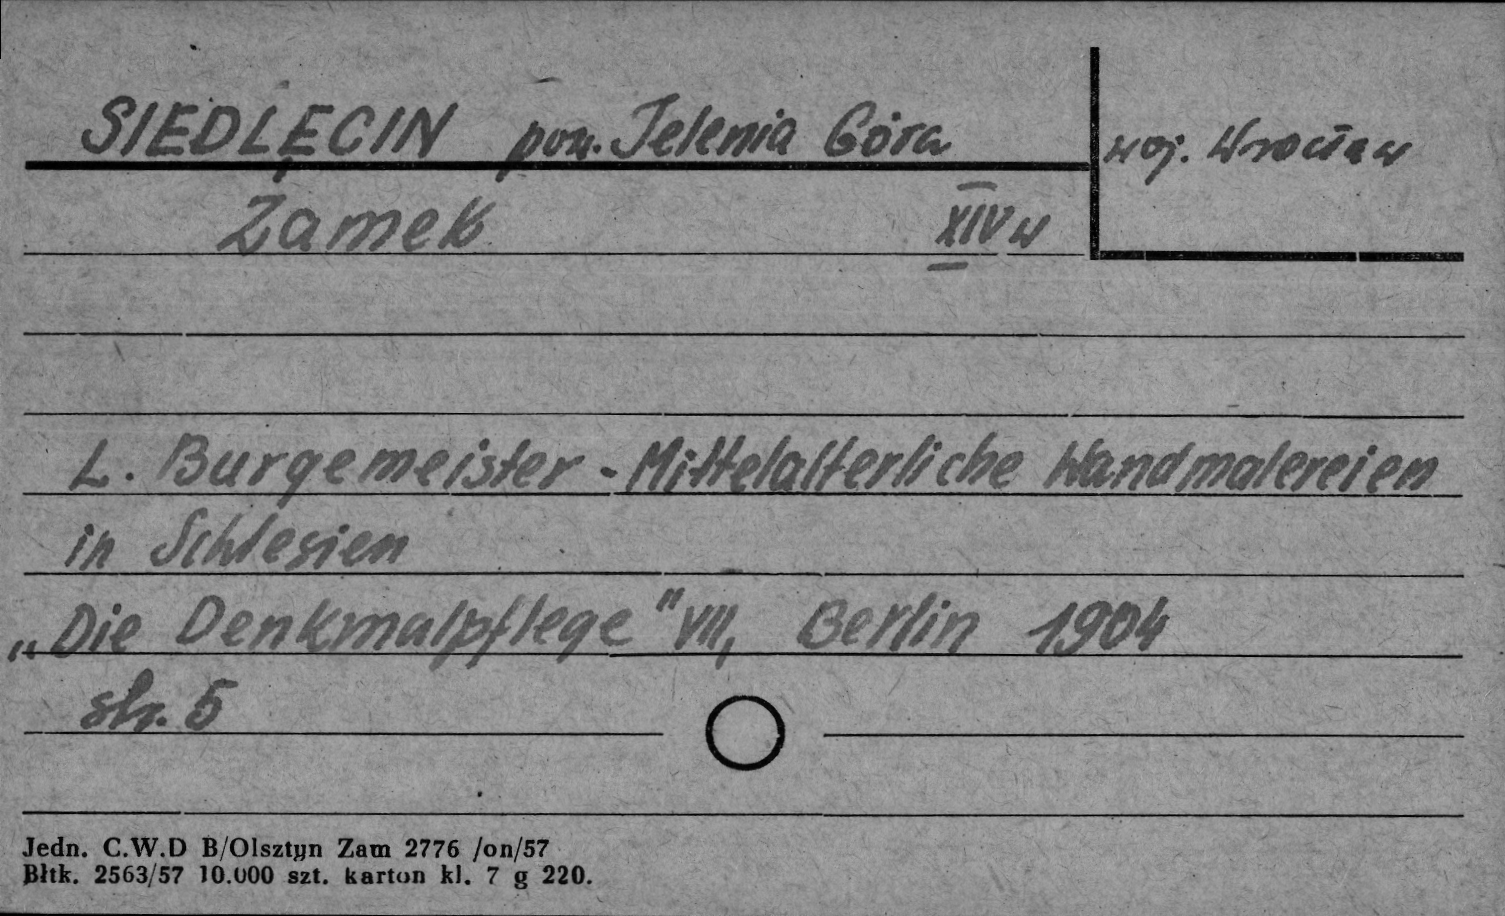 SIEDLĘCIN pow. Jelenia Góra
woj. Wrocław
Zamek XIV w
L. Burgemeister - Mittelalterliche Wandmalereien
in Schlesien
„Die Denkmalpflege" VII, Berlin 1904
str. 5
Jedn. C.W.D B/Olsztyn Zam 2776 /on/57
Błtk. 2563/57 10.000 szt. karton kl. 7 g 220.